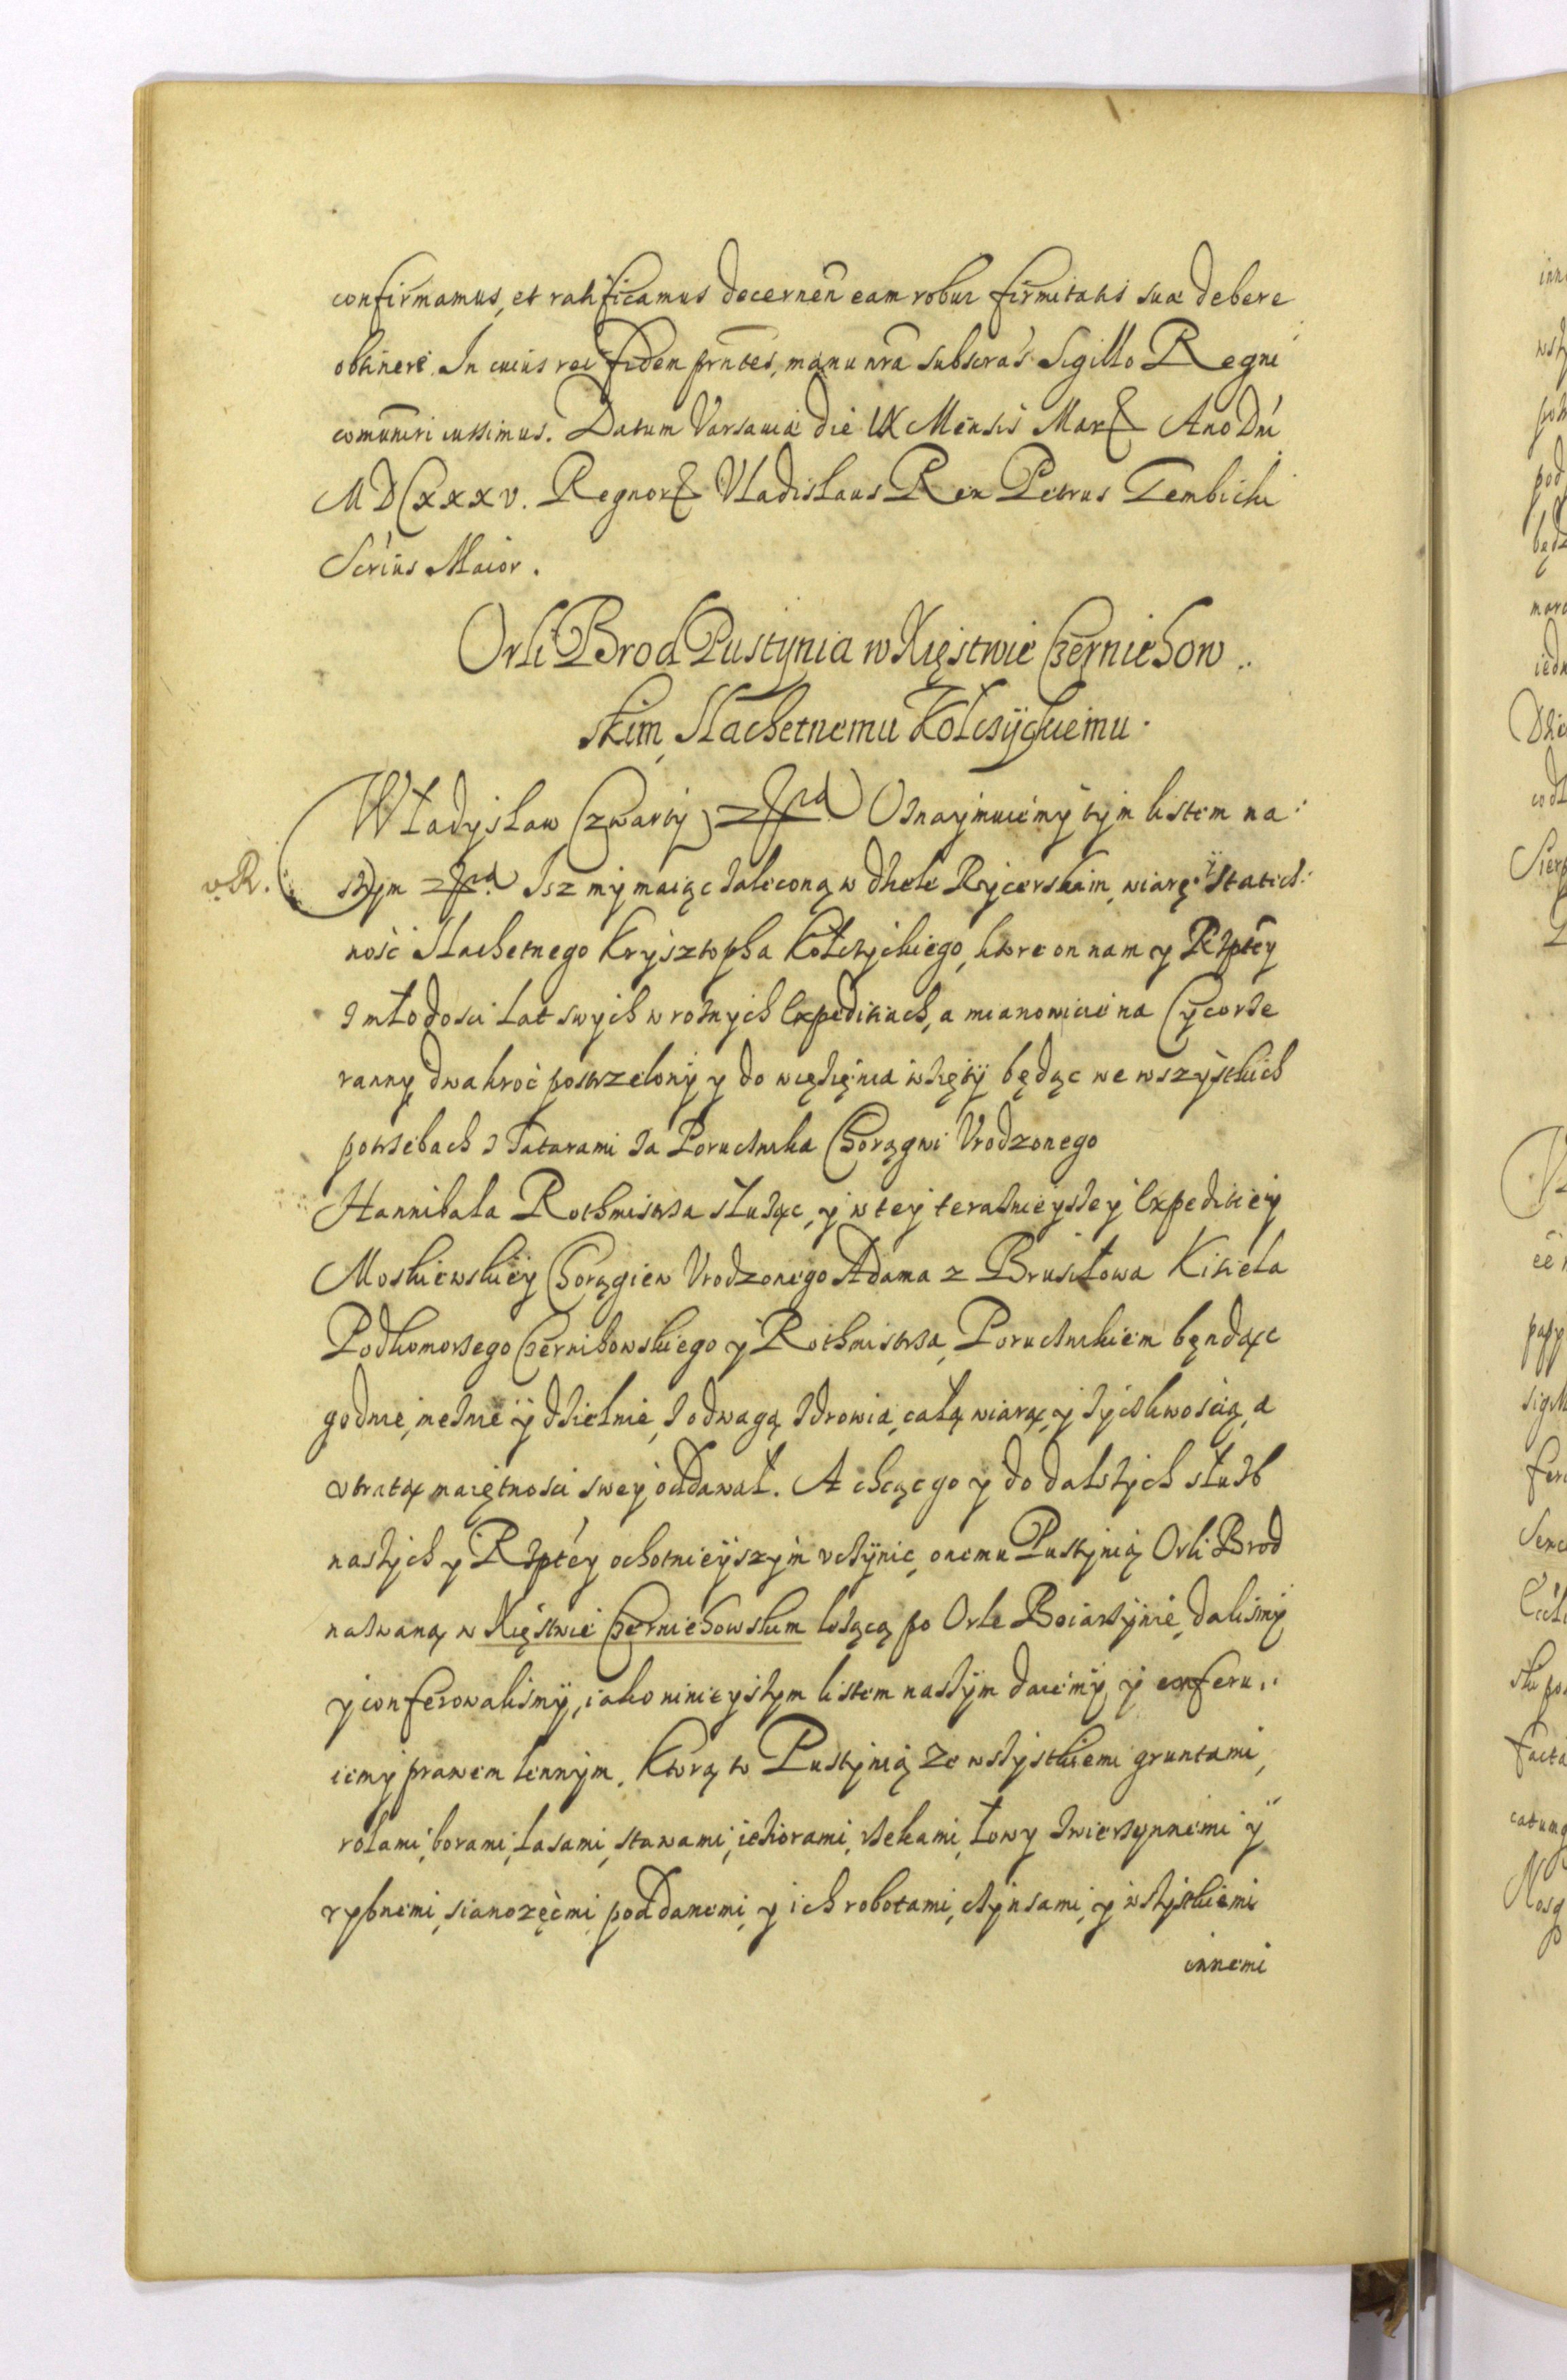 confirmamus, et ratificamus decernen eam robur firmitatis suæ debere
obtinere. In cuius rei fidem prñtes, manu nrã subscrás Sigillo Regni
comuniri iussimus. Datum Varsaviæ die IX Mensis Mar Ano Dni
MDCXXXV. Regnor Vladislaus Rex Petrus Gembicki
Scrius Maior.
Orli Brod Pustynia w Xięstwie Czerniehow..
skim, Slachetnemu Kolczyckiemu.
Władysław Czwarty Oznaymuiemy tym listem na:
v. R. szym Isz my maiąc zaleconą w dziele Rycerskim, wiarę y statecz:
ność slachetnego Krysztopha Kołczyckiego, ktore on nam y Rzptey
z młodosci lat swych w rożnych Expeditiach, a mianowicie na Cycorze
ranny, dwakroć postrzelony y do więzięnia wzięty będąc we wszystkich
potrzebach z Tatarami za Porucznika Chorągwi Vrodzonego
Hannibala Rothmistrza służąc, y w tey terasnieyszey Expeditiey
Moskiewskiey Chorągiew Vrodzonego Adama z Brusiłowa Kisiela
Podkomorzego Czernihowskiego y Rothmistrza, Porucznikiem bęndąc
godnie, meżnie y dzielnie, z odwagą zdrowia, całą wiarą, y życzliwością, a
vtratą maiętności swey oddawał. A chcąc go y do dalszych służb
naszych y Rzptey ochotnieyszym vczynic, onemu Pustynią Orli Brod
nazwaną w Xięstwie Czerniehowskim leżącą po Orle Boiarzynie, dalismy
y conferowalismy, iako ninieyszym listem naszym daiemy y conferu..
iemy prawem lennym. Ktorą to Pustynią ze wszystkiemi gruntami,
rolami, borami, lasami, stawami, ieziorami, rzekami, łowy zwierzynnemi y
rybnemi, sianozęćmi, poddanemi, y ich robotami, czynsami, y wszystkiemi
innemi